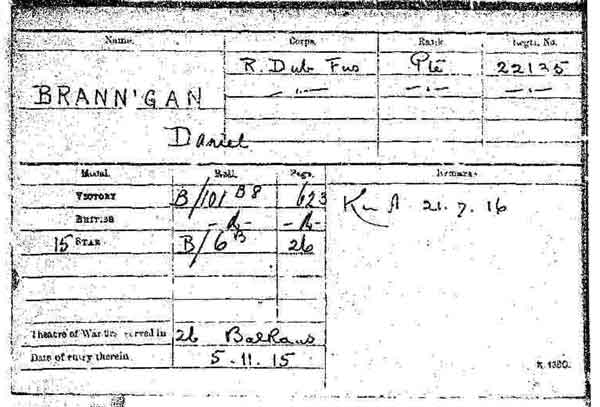 Name. Corps. Rank. Regtl. No.
R. Dub Fus Pte 22135
BRANNIGAN — " — — " — — " —
Daniel
Medal. Roll. Page. Remarks.
VICTORY B/101 B8 623 K in A 21.7.16
BRITISH - do - - do -
15 STAR B/6B 26
Theatre of War first served in 2b Balkans
Date of entry therein 5.11.15
K. 1380.